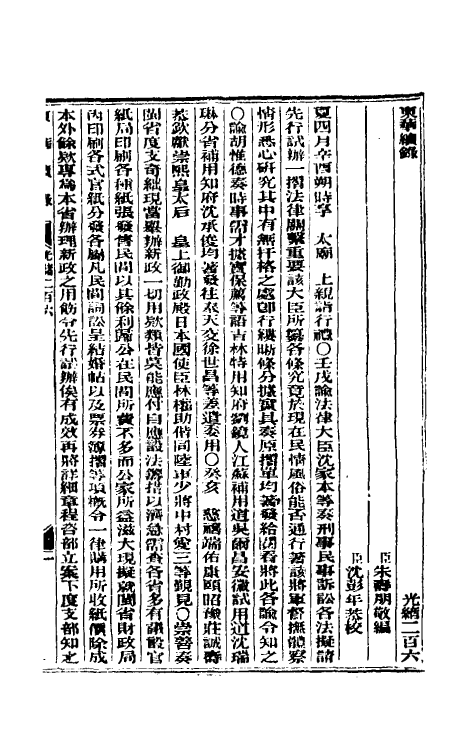 東華續錄
光緒二百六
臣朱壽朋敬編
臣沈彭年恭校
夏四月辛酉朔時享 太廟 上親詣行禮○壬戌諭法律大臣沈家本等奏刑事民事訴訟各法擬請
先行試辦一摺法律關繫重要該大臣所纂各條究竟於現在民情風俗能否通行著該將軍督撫體察
情形悉心研究其中有無扞格之處卽行縷晰條分據實具奏原摺單均著發給閱看將此各諭令知之
○諭胡惟德奏時事需才據實保薦等語吉林特用知府劉鏡人江蘇補用道吳錡昌安徽試用道沈瑞
琳分省補用知府沈承俊均著發往奉天交徐世昌等差遣委用○癸亥 慈禧端佑康頤昭豫莊誠壽
恭欽獻崇熙皇太后 皇上御勤政殿日本國使臣林權助偕同陸軍少將中村愛三等覲見○崇善奏
閩省度支奇絀現當舉辦新政一切用款類皆莫能應付自應設法籌措以濟急需查各省多有議設官
紙局印刷各種紙張發傳民間以其餘利歸公在民間所費不多而公家所益滋大現擬就閩省財政局
內印刷各式官紙分發各屬凡民間詞訟呈結婚帖以及票券簿摺等項概令一律購用所收紙價除成
本外餘款專爲本省辦理新政之用飭令先行試辦俟有成效再將詳細章程咨部立案下度支部知之